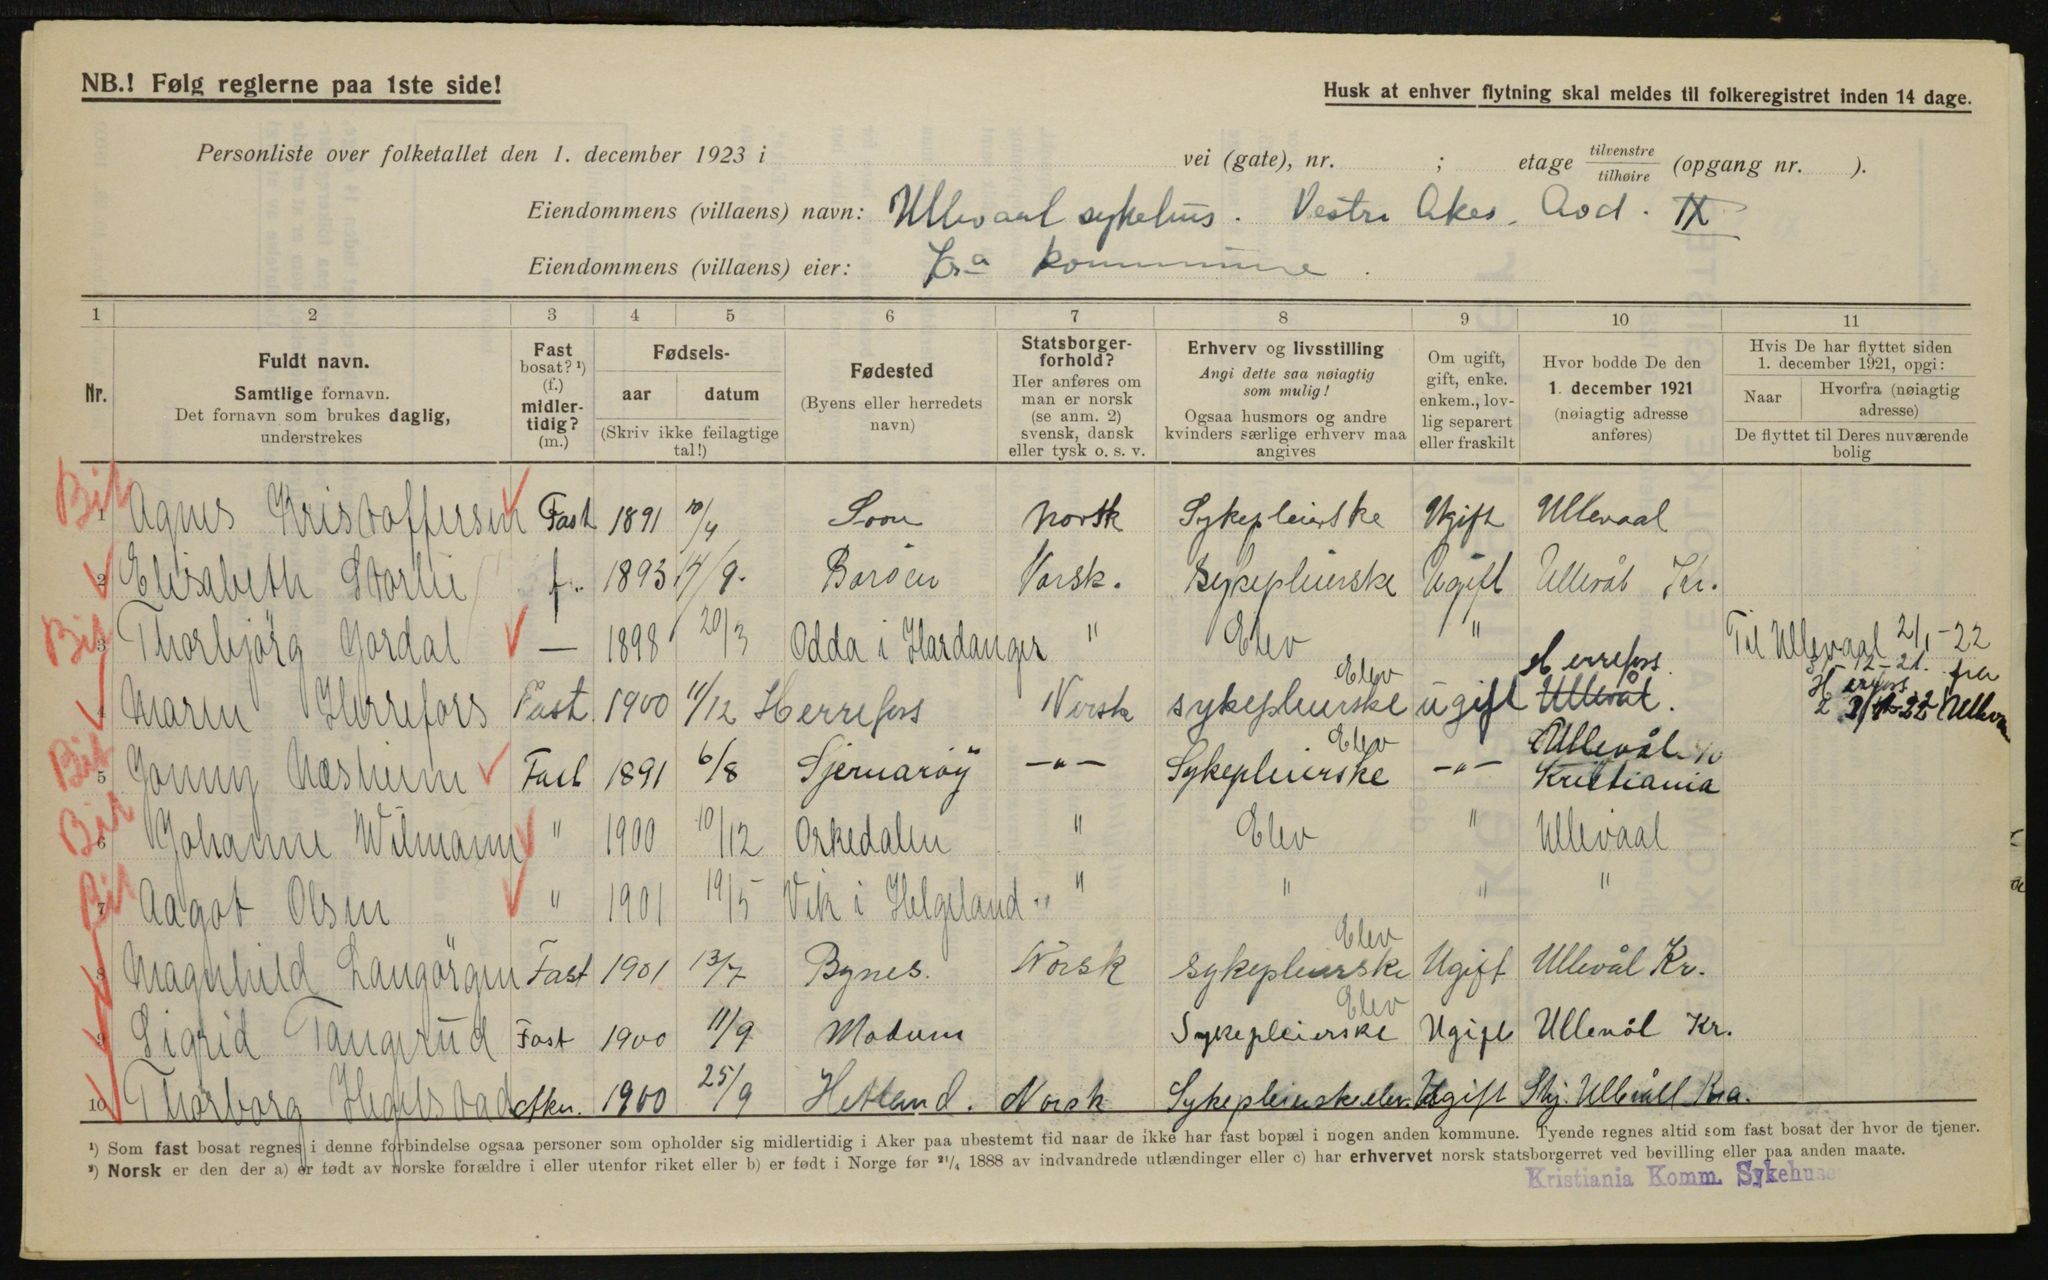 NB.! Følg reglerne paa 1ste side!
Husk at enhver flytning skal meldes til folkeregistret inden 14 dage.
Personliste over folketallet den 1. december 1923 i vei (gate), nr. ; etage tilvenstre/tilhøire (opgang nr. ).
Eiendommens (villaens) navn: Ullevaal sykehus. Vestre Aker. IX
Eiendommens (villaens) eier: Kra kommune
1 2 3 4 5 6 7 8 9 10 11
Nr.
Fuldt navn.
Samtlige fornavn.
Det fornavn som brukes daglig,
understrekes
Fast
bosat? ¹)
(f.)
midler-
tidig?
(m.)
Fødsels-
aar datum
(Skriv ikke feilagtige
tal!)
Fødested
(Byens eller herredets
navn)
Statsborger-
forhold?
Her anføres om
man er norsk
(se anm. 2)
svensk, dansk
eller tysk o. s. v.
Erhverv og livsstilling
Angi dette saa nøiagtig
som mulig!
Ogsaa husmors og andre
kvinders særlige erhverv maa
angives
Om ugift,
gift, enke.
enkem., lov-
lig separert
eller fraskilt
Hvor bodde De den
1. december 1921
(nøiagtig adresse
anføres)
Hvis De har flyttet siden
1. december 1921, opgi:
Naar Hvorfra (nøiagtig
adresse)
De flyttet til Deres nuværende
bolig
1 Agnes Kristoffersen Fast 1891 10/4 Soon norsk Sykepleierske Ugift Ullevaal
2 Elisabeth Storli f. 1893 17/9. Borøen Norsk. Sykepleierske Ugift Ullevål Kr.
3 Thorbjørg Jordal — 1898 20/3 Odda i Hardanger " Elev " Til Ullevaal 2/1-22
Elev Herrefoss. 12-21. fra
4 Maren Herrefoss Fast 1900 11/12 Herrefoss Norsk sykepleierske ugift Ullevål.
Elev Ullevål
5 Næsheim Fast 1891 6/8 Sjernarøy —"— Sykepleierske —"— Kristiania
6 Johanne Wilmann " 1900 10/12 Orkedalen " Elev " Ullevaal
7 Aagot Olsen " 1901 19/5 Vik i Helgeland " " " "
Elev
8 Magnhild Langørgen Fast 1901 13/7 Bynes. Norsk sykepleierske Ugift Ullevål Kr.
Elev
9 Sigrid Tangerud Fast 1900 11/9 Modum Sykepleierske Ugift Ullevål Kr.
10 Thorborg 1900 25/9 Hetland. Norsk Sykepleierskeelev. Ugift Ullevåll Kra.
¹) Som fast bosat regnes i denne forbindelse ogsaa personer som opholder sig midlertidig i Aker paa ubestemt tid naar de ikke har fast bopæl i nogen anden kommune. Tyende regnes altid som fast bosat der hvor de tjener.
²) Norsk er den der a) er født av norske forældre i eller utenfor riket eller b) er født i Norge før ²¹/₄ 1888 av indvandrede utlændinger eller c) har erhvervet norsk statsborgerret ved bevilling eller paa anden maate.
Kristiania Komm. Sykehuse